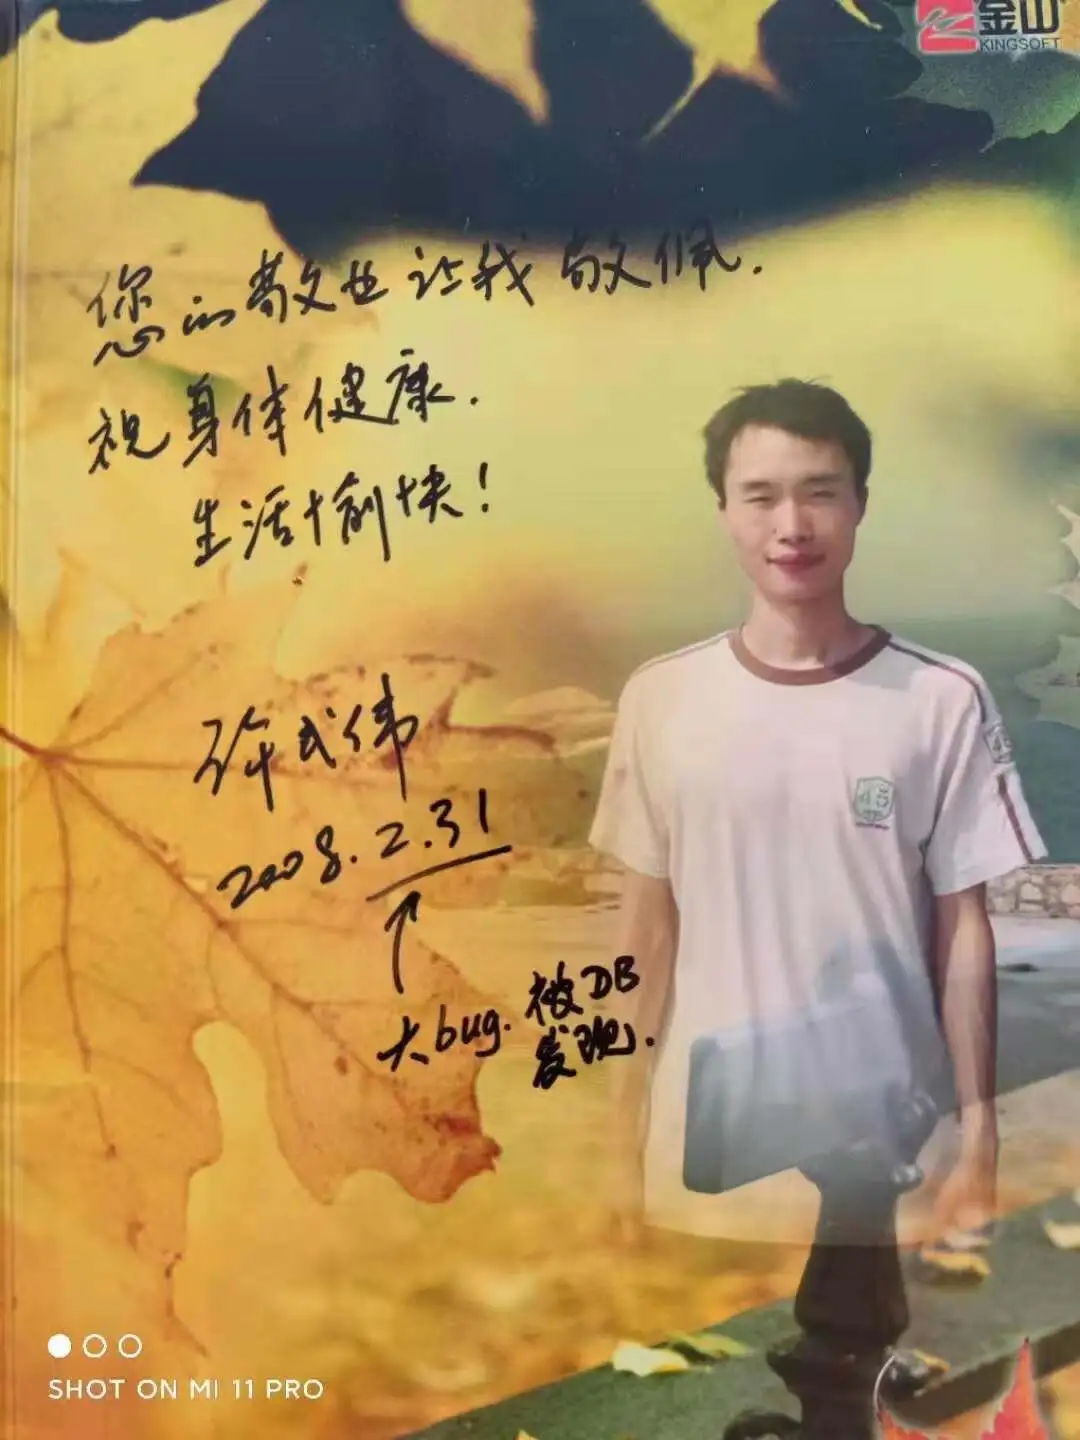 金山
KINGSOFT
您的敬业让我敬佩.
祝身体健康.
生活愉快!
许式伟
2008.2.31
↑
大bug. 被DB
发现.
SHOT ON MI 11 PRO